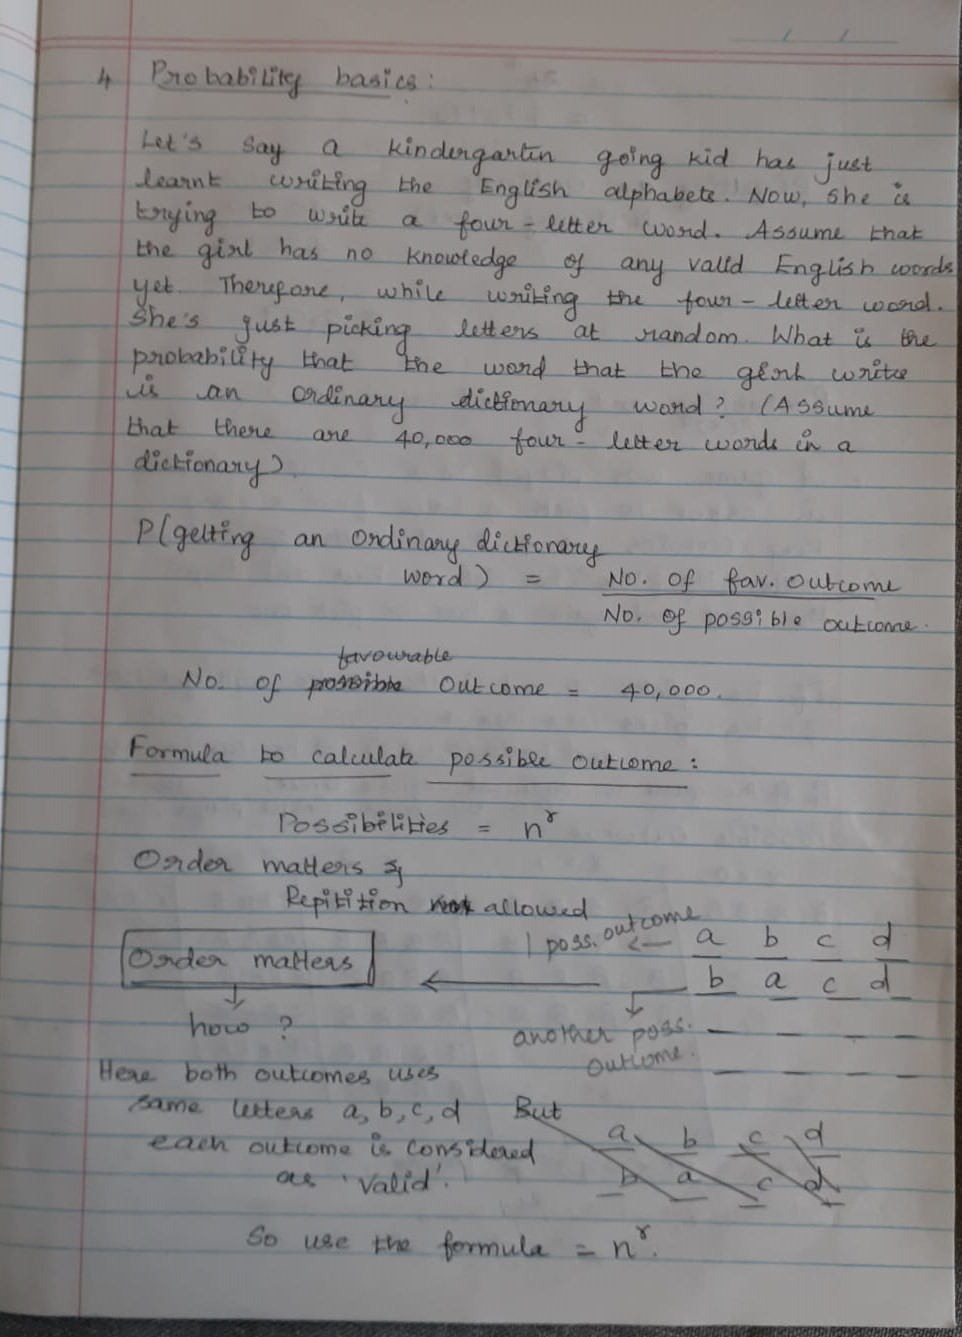 4 Probability basics:
Let's say a kindergartin going kid has just
learnt writing the English alphabets. Now, she is
trying to write a four-letter word. Assume that
the girl has no knowledge of any valid English words
yet. Therefore, while writing the four-letter word.
She's just picking letters at random. What is the
probability that the word that the girl writes
is an ordinary dictionary word? (Assume
that there are 40,000 four-letter words in a
dictionary).
P(getting an ordinary dictionary
word) = No. of fav. outcome
No. of possible outcome.
favourable
No. of possible outcome = 40,000.
Formula to calculate possible outcome:
Possibilities = n^r
Order matters &
Repitition not allowed
1 poss. outcome ← a b c d
Order matters ← b a c d
how ? another poss.
outcome.
Here both outcomes uses
same letters a, b, c, d But
each outcome is considered a b c d
as 'valid'. b a c d
So use the formula = n^r.